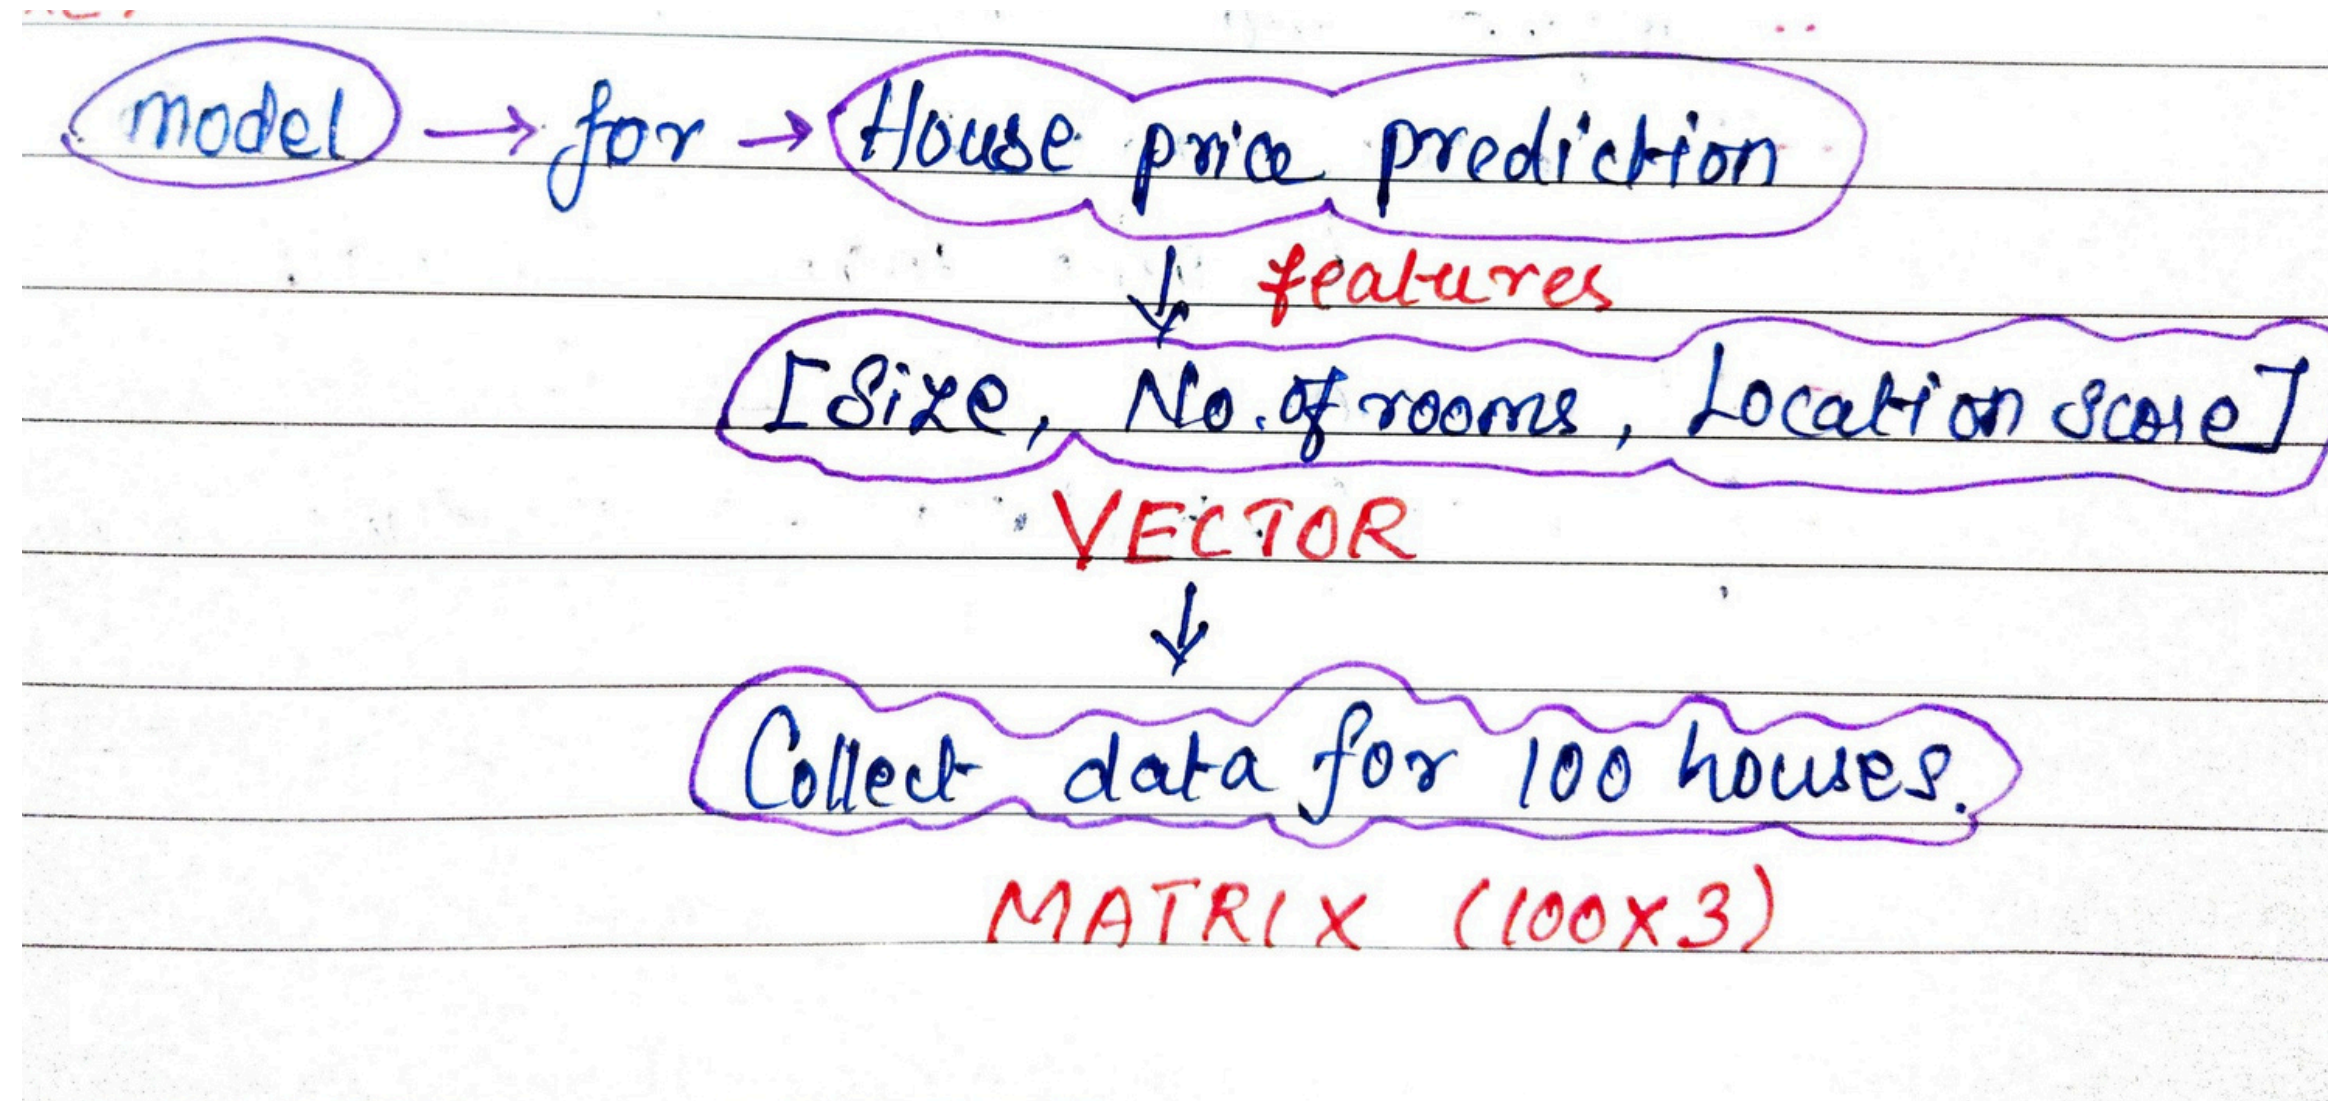 model → for → House price prediction
↓ features
[Size, No. of rooms, Location score]
VECTOR
↓
Collect data for 100 houses.
MATRIX (100x3)